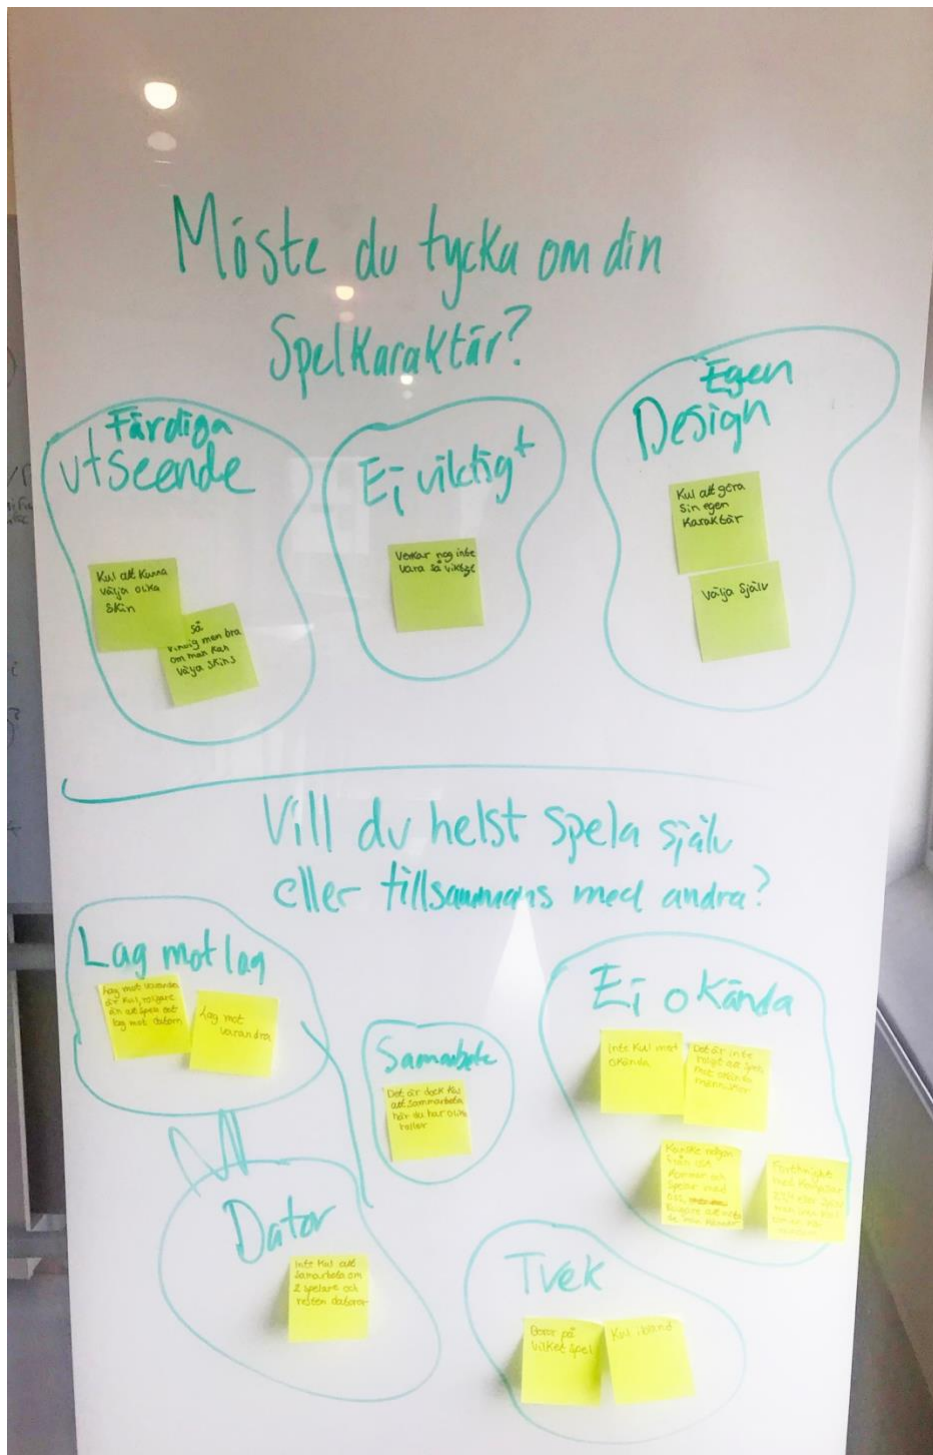 Måste du tycka om din
Spelkaraktär?
Färdiga
utseende
Kul att kunna
välja olika
skin
så
viktig men bra
om man kan
välja skins
Ej viktigt
Verkar nog inte
vara så viktigt
Egen
Design
Kul att göra
sin egen
karaktär
Välja själv
Vill du helst spela själv
eller tillsammans med andra?
Lag mot lag
Lag mot varandra
är kul, roligare
än att spela ett
lag mot datorn
Lag mot
varandra
Samarbete
Det är dock kul
att sammarbeta
när du har olika
roller
Ej okända
Inte kul mot
okända
Det är inte
roligt att spela
mot okända
människor
Kanske någon
från
kommer och
spelar med
oss,
Roligare att möta
de man känner
Forthnight
med kompisar
man
Dator
Inte kul att
samarbeta om
2 spelare och
resten datorer
Tvek
Beror på
vilket spel
Kul ibland